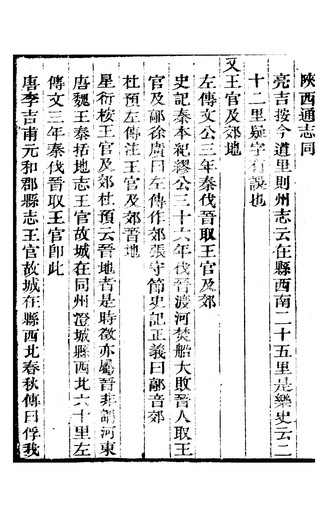 陝西通志同
亮吉按今道里則州志云在縣西南二十五里是樂史云二
十二里疑字有誤也
又王官及郊地
左傳文公三年秦伐晉取王官及郊
史記秦本紀繆公三十六年伐晉渡河焚船大敗晉人取王
官及鄗徐廣曰左傳作郊張守節史記正義曰鄗音郊
杜預左傳注王官及郊晉地
星衍按王官及郊杜預云晉地者是時徵亦屬晉非謂河東
唐魏王泰括地志王官故城在同州澄城縣西北六十里左
傳文三年秦伐晉取王官卽此
唐李吉甫元和郡縣志王官故城在縣西北春秋傳曰俘我